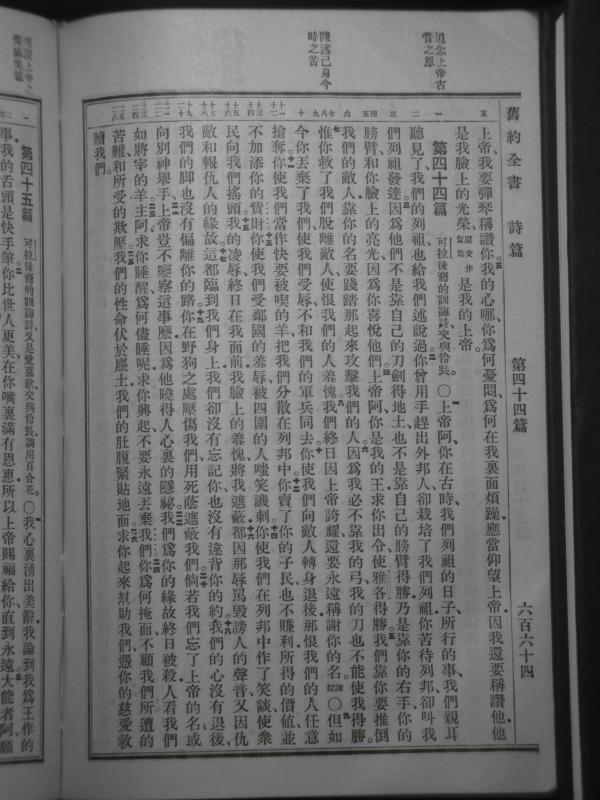 舊約全書 詩篇 第四十四篇 六百六十四
五
上帝、我要彈琴稱讚你、我的心哪、你爲何憂悶、爲何在我裏面煩躁、應當仰望上帝、因我還要稱讚他、他
是我臉上的光榮、原文作幫助 是我的上帝。
第四十四篇 可拉後裔的訓誨詩、交與伶長。〇上帝阿、你在古時、我們列祖的日子、所行的事、我們親耳
聽見了、我們的列祖也給我們述說過、你曾用手趕出外邦人、卻栽培了我們列祖、你苦待列邦、卻叫我
們列祖發達、因爲他們不是靠自己的刀劍得地土、也不是靠自己的膀臂得勝、乃是靠你的右手、你的
膀臂、和你臉上的亮光、因爲你喜悅他們、上帝阿、你是我的王、求你出令、使雅各得勝、我們靠你要推倒
我們的敵人、靠你的名要踐踏那起來攻擊我們的人、因爲我必不靠我的弓、我的刀也不能使我得勝。
惟你救了我們脫離敵人、使恨我們的人羞愧、我們終日因上帝誇耀、還要永遠稱謝你的名、細拉 〇但如
今你丟棄了我們、使我們受辱、不和我們的軍兵同去、你使我們向敵人轉身退後、那恨我們的人任意
搶奪、你使我們當作快要被喫的羊、把我們分散在列邦中、你賣了你的子民、也不賺利、所得的價值、並
不加添你的貲財、你使我們受鄰國的羞辱、被四圍的人嗤笑譏刺、你使我們在列邦中作了笑談、使衆
民向我們搖頭、我的凌辱、終日在我面前、我臉上的羞愧、將我遮蔽、都因那辱罵毀謗人的聲音、又因仇
敵和報仇人的緣故、這都臨到我們身上、我們卻沒有忘記你、也沒有違背你的約、我們的心沒有退後、
我們的脚也沒有偏離你的路、你在野狗之處壓傷我們、用死蔭遮蔽我們、倘若我們忘了上帝的名、或
向別神舉手、上帝豈不鑒察這事麼、因爲他曉得人心裏的隱祕、我們爲你的緣故、終日被殺、人看我們
如將宰的羊、主阿、求你睡醒、爲何儘睡呢、求你興起、不要永遠丟棄我們、你爲何掩面、不顧我們所遭的
苦難、和所受的欺壓、我們的性命伏於塵土、我們的肚腹緊貼地面、求你起來幫助我們、憑你的慈愛救
贖我們。
第四十五篇 可拉後裔的訓誨詩、又是愛慕歌、交與伶長、調用百合花。〇我心裏湧出美辭、我論到我爲王作的
事、我的舌頭是快手筆、你比世人更美、在你嘴裏滿有恩惠、所以上帝賜福給你、直到永遠、大能者阿、願
追念上帝古昔之恩
陳述己身今時之苦